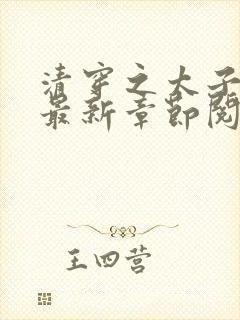 清穿之太子
最新章节阅
王四营